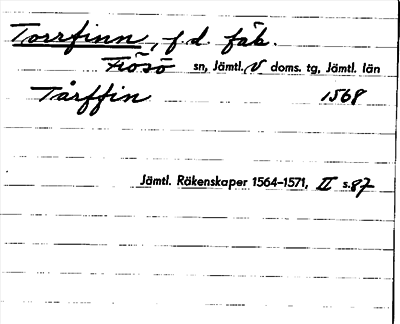 Torrfinn, f.d. fäb.
Frösö sn, Jämtl. V doms. tg, Jämtl. län
Tårffin 1568
Jämtl. Räkenskaper 1564-1571, II s.87